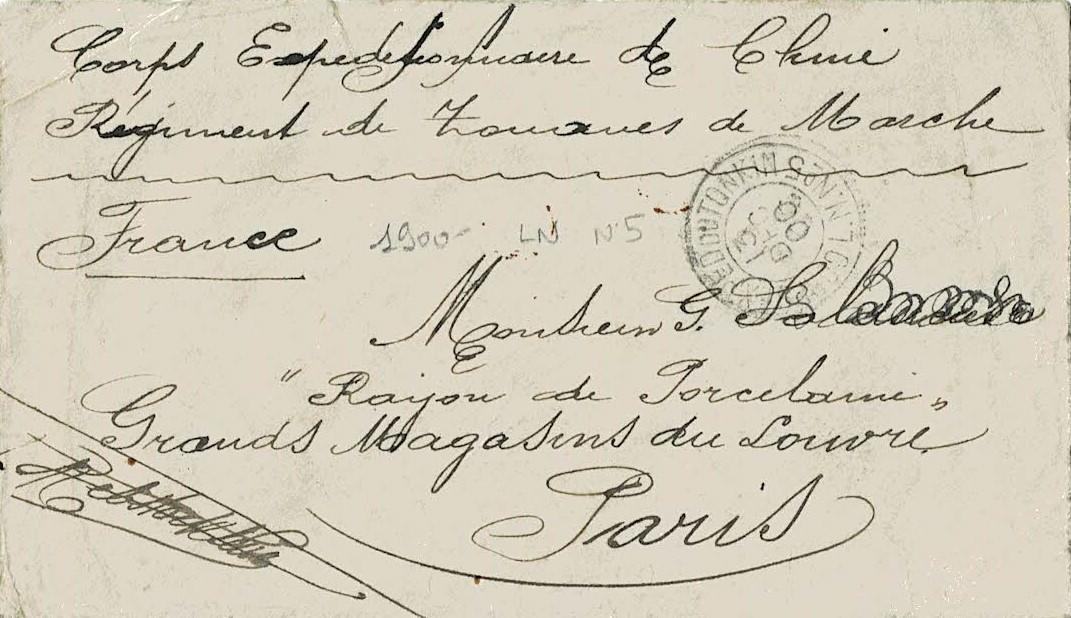 Corps Expeditionnaire de Chine
Régiment de Zouaves de Marche
France
1900- LN N°5
Monsieur G.
"Rayon de Porcelaine"
Grands Magasins du Louvre
Paris